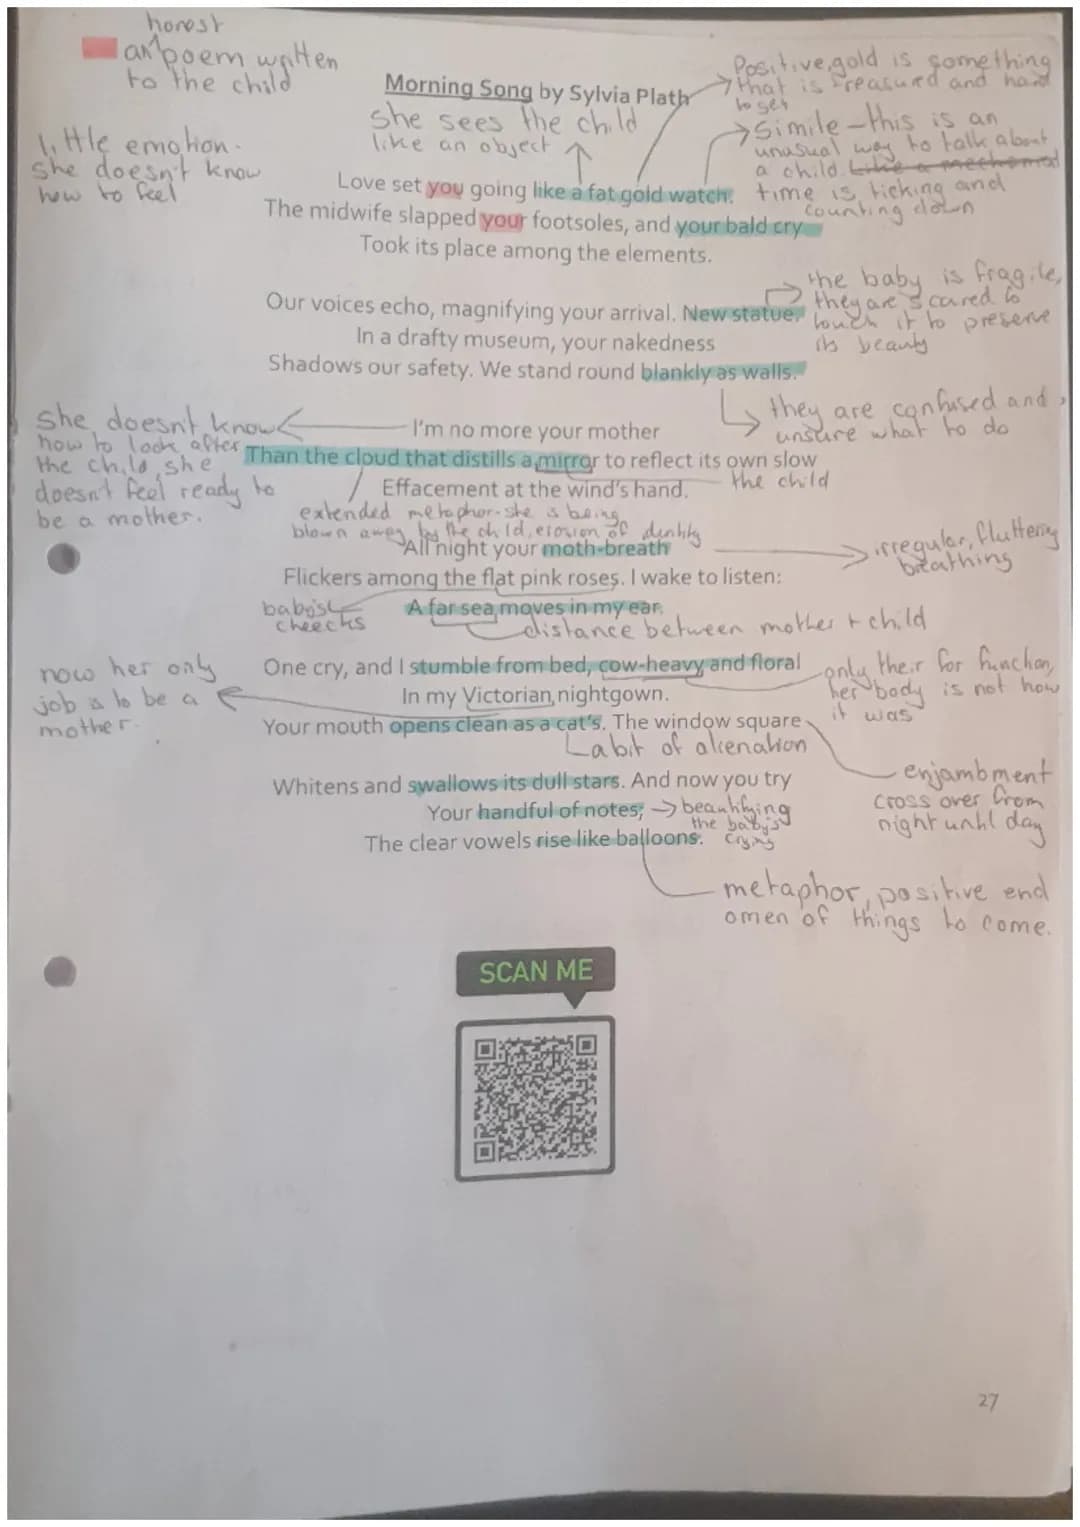 honest
an ^ poem written
to the child
Morning Song by Sylvia Plath
Positive, gold is something
that is treasured and hard
to get
she sees the child
like an object
Simile - this is an
unusual way to talk about
a child like a
time is ticking and
counting down
little emotion.
she doesn't know
how to feel
Love set you going like a fat gold watch.
The midwife slapped your footsoles, and your bald cry
Took its place among the elements.
the baby is fragile,
they are scared to
touch it to preserve
its beauty
Our voices echo, magnifying your arrival. New statue.
In a drafty museum, your nakedness
Shadows our safety. We stand round blankly as walls.
they are confused and
unsure what to do
she doesn't know
how to look after
the child, she
doesn't feel ready to
be a mother.
I'm no more your mother
Than the cloud that distills a mirror to reflect its own slow
Effacement at the wind's hand.
the child
extended metaphor - she is being
blown away by the child, erosion of identity
All night your moth-breath
irregular, fluttering
breathing
Flickers among the flat pink roses. I wake to listen:
A far sea moves in my ear.
baby's
cheecks
distance between mother + child
One cry, and I stumble from bed, cow-heavy and floral
In my Victorian nightgown.
Your mouth opens clean as a cat's. The window square
now her only
job is to be a
mother.
only their for function,
her body is not how
it was
a bit of alienation
Whitens and swallows its dull stars. And now you try
Your handful of notes;
The clear vowels rise like balloons.
beautifying
the baby's
crying
enjambment
cross over from
night until day
metaphor, positive end
omen of things to come.
SCAN ME
27